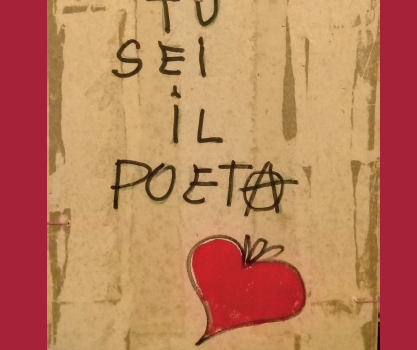 TU
SEI
IL
POETA